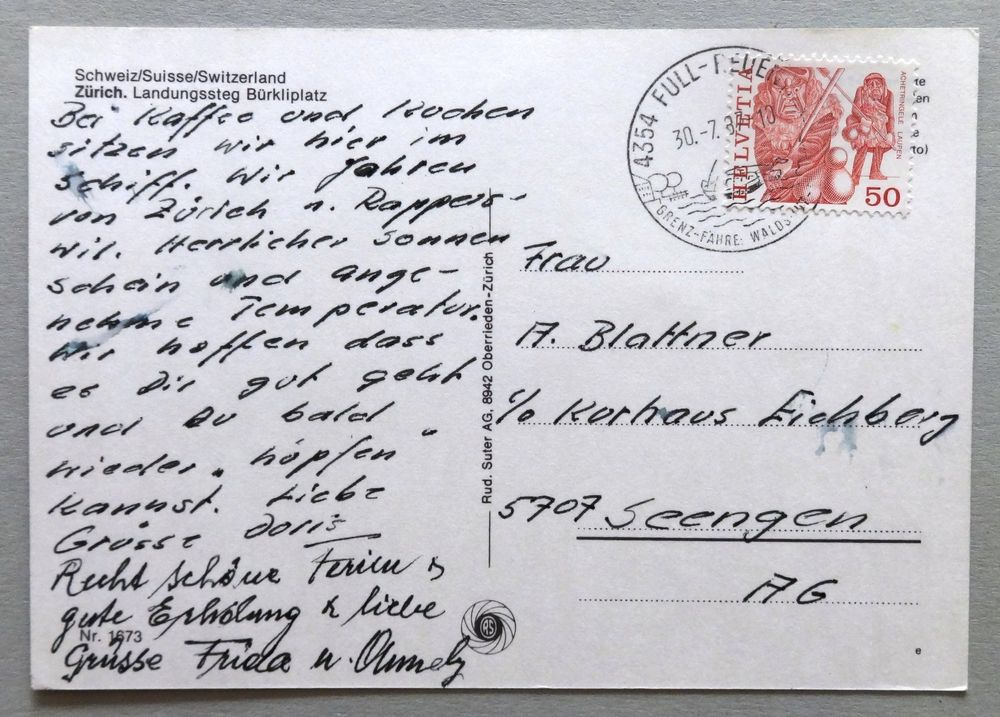 Schweiz/Suisse/Switzerland
Zürich. Landungssteg Bürkliplatz
Bei Kaffee und Kuchen
sitzen wir hier im
Schiff. Wir fahren
von Zürich n. Rappers-
wil. Herrlicher Sonnen
schein und ange-
nehme Temperatur.
Wir hoffen dass
es Dir gut geht
und Du bald
wieder „höpfen"
kannst. Liebe
Grüsse Doris
Recht schöne Ferien &
gute Erholung & liebe
Nr. 1673
Grüsse Frieda u.
Rud. Suter AG, 8942 Oberrieden-Zürich
RS
4354 FULL-REUEN
30.-7.87-10
GRENZ-FÄHRE: WALDS
HELVETIA
ACHETRINGELE LAUPEN
50
te
en
e
to)
Frau
A. Blattner
c/o Kurhaus Eichberg
5707 Seengen
AG
e